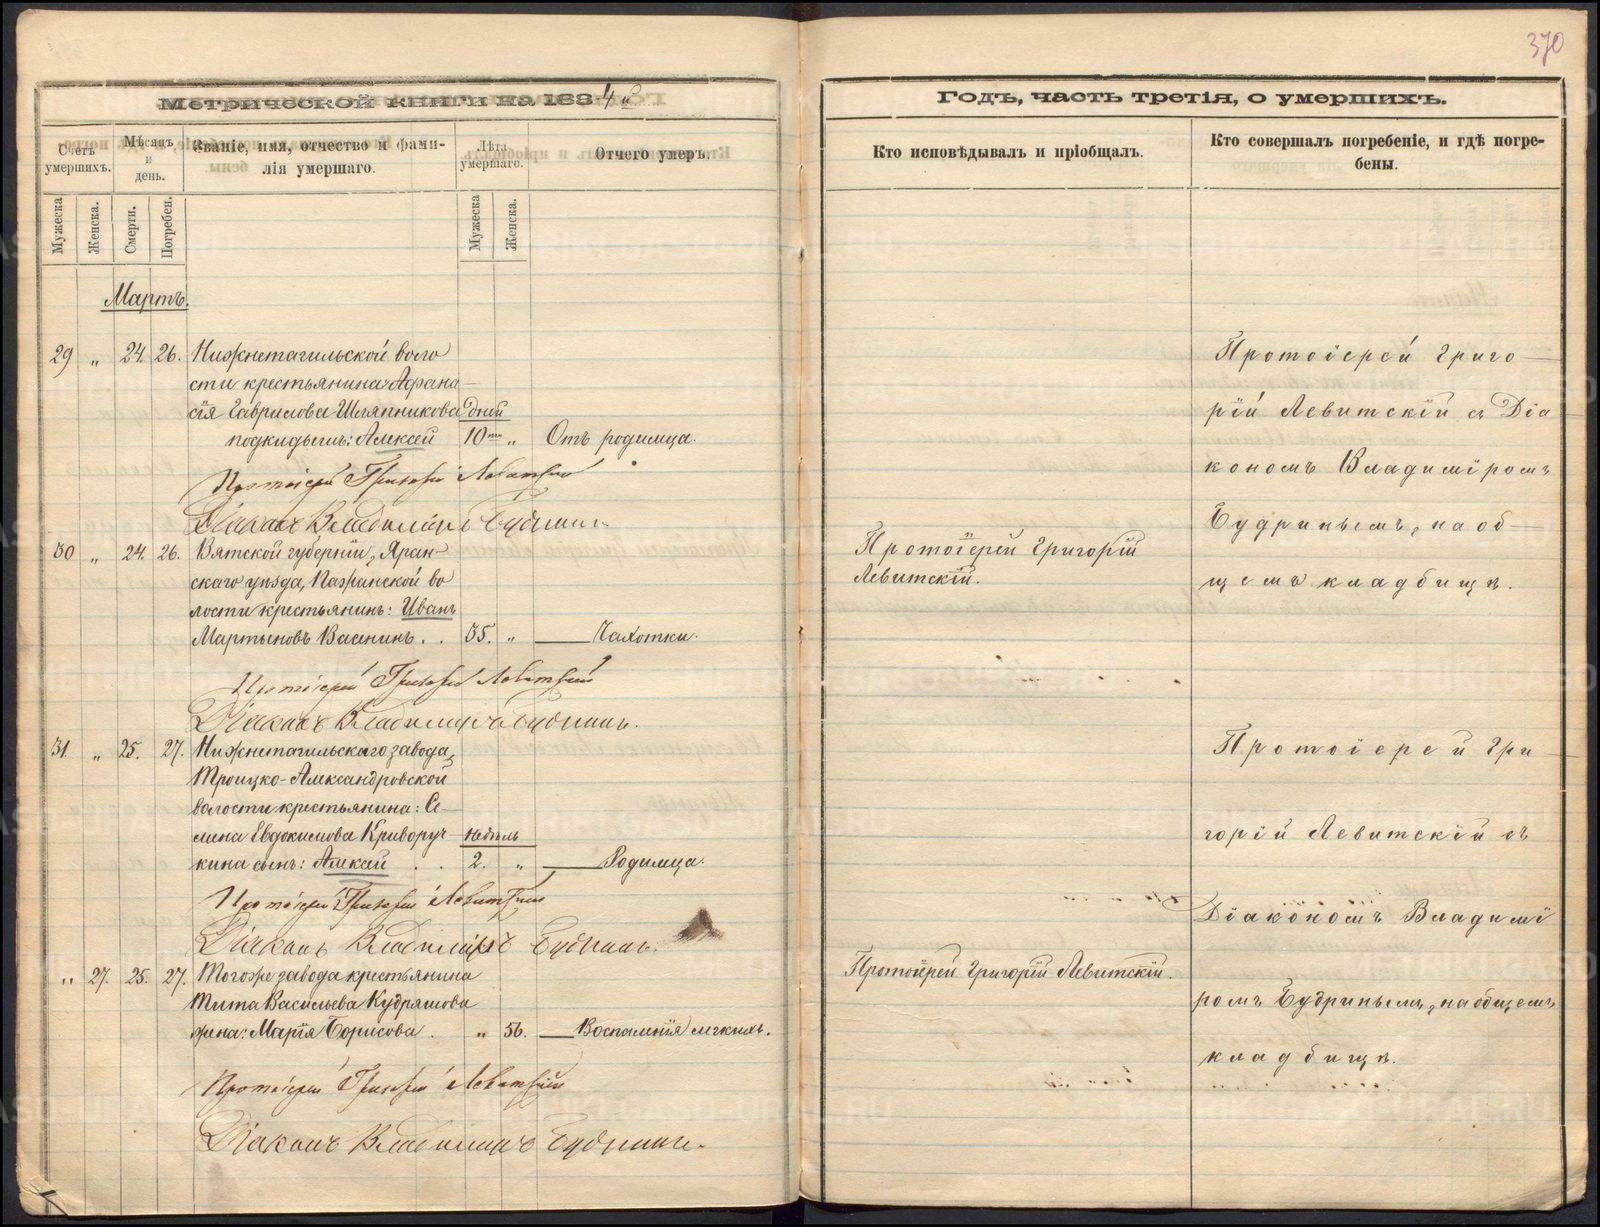 370
Метрической книги на 1884й
Счетъ умершихъ.
Мѣсяцъ и день.
Званіе, имя, отчество и фами-
лія умершаго.
Лѣта умершаго.
Отчего умеръ.
Мужеска
Женска.
Смерти.
Погребен.
Мужеска
Женска.
Мартъ.
29 „ 24. 26. Нижнетагильской воло
сти крестьянина Афана—
сія Гаврилова Шляпникова дней
подкидышъ: Алексей 10ти „ Отъ родимца.
Протоіерей Григорій Левитскій
Діаконъ Владиміръ Будринъ.
30 „ 24. 26. Вятской губерніи, Яран-
скаго уѣзда, Пажанской во
лости крестьянинъ: Иванъ
Мартыновъ Васнинъ . . 35. „ — Чахотки.
Протоіерей Григорій Левитскій
Діаконъ Владиміръ Будринъ.
31 „ 25. 27. Нижнетагильскаго завода,
Троицко-Александровской
волости крестьянина: Се—
мена Евдокимова Криворуч- недѣль
кина сынъ: Алексей . . 2. „ — Родимца.
Протоіерей Григорій Левитскій
Діаконъ Владиміръ Будринъ.
„ 27. 25. 27. Тогоже завода крестьянина
Тита Васильева Кудряшова
жена: Марія Борисова . „ 56. — Воспаленія легкихъ.
Протоіерей Григорій Левитскій
Діаконъ Владиміръ Будринъ.
Годъ, часть третія, о умершихъ.
Кто исповѣдывалъ и пріобщалъ.
Кто совершалъ погребеніе, и гдѣ погре-
бены.
Протоіерей Григо—
рій Левитскій съ Діа—
кономъ Владиміромъ
Будринымъ, на об—
щемъ кладбищѣ.
Протоіерей Григорій
Левитскій.
Протоіерей Гри—
горій Левитскій съ
Діакономъ Владимі
ромъ Будринымъ, на общемъ
кладбищѣ.
Протоіерей Григорій Левитскій.